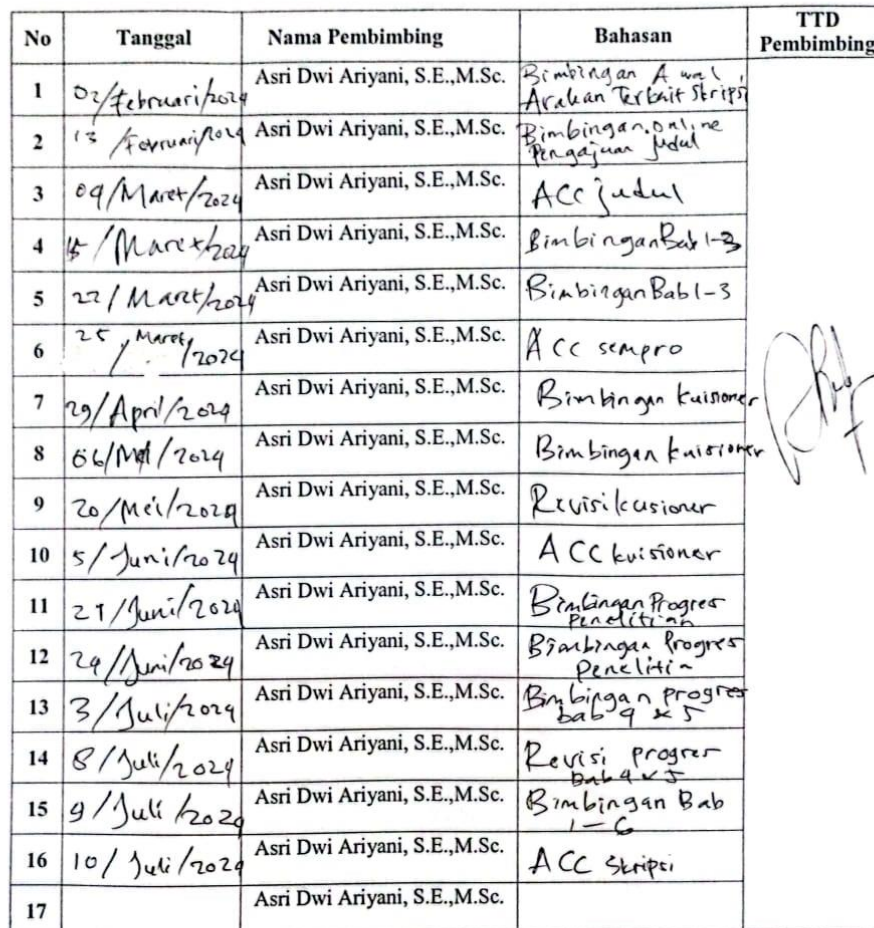 No Tanggal Nama Pembimbing Bahasan TTD Pembimbing
1 02/Februari/2024 Asri Dwi Ariyani, S.E.,M.Sc. Bimbingan Awal
Arahan Terkait Skripsi
2 13/Februari/2024 Asri Dwi Ariyani, S.E.,M.Sc. Bimbingan online
Pengajuan judul
3 09/Maret/2024 Asri Dwi Ariyani, S.E.,M.Sc. ACC judul
4 15/Maret/2024 Asri Dwi Ariyani, S.E.,M.Sc. Bimbingan Bab 1-3
5 22/Maret/2024 Asri Dwi Ariyani, S.E.,M.Sc. Bimbingan Bab 1-3
6 25/Maret/2024 Asri Dwi Ariyani, S.E.,M.Sc. ACC sempro
7 29/April/2024 Asri Dwi Ariyani, S.E.,M.Sc. Bimbingan kuisioner
8 06/Mei/2024 Asri Dwi Ariyani, S.E.,M.Sc. Bimbingan kuisioner
9 20/Mei/2024 Asri Dwi Ariyani, S.E.,M.Sc. Revisi kusioner
10 5/Juni/2024 Asri Dwi Ariyani, S.E.,M.Sc. ACC kuisioner
11 /Juni/2024 Asri Dwi Ariyani, S.E.,M.Sc. Bimbingan Progres
Penelitian
12 24/Juni/2024 Asri Dwi Ariyani, S.E.,M.Sc. Bimbingan Progres
Penelitin
13 3/Juli/2024 Asri Dwi Ariyani, S.E.,M.Sc. Bimbingan progres
bab 4 & 5
14 8/Juli/2024 Asri Dwi Ariyani, S.E.,M.Sc. Revisi progres
Bab 4 & 5
15 9/Juli/2024 Asri Dwi Ariyani, S.E.,M.Sc. Bimbingan Bab
1-6
16 10/Juli/2024 Asri Dwi Ariyani, S.E.,M.Sc. ACC Skripsi
17 Asri Dwi Ariyani, S.E.,M.Sc.